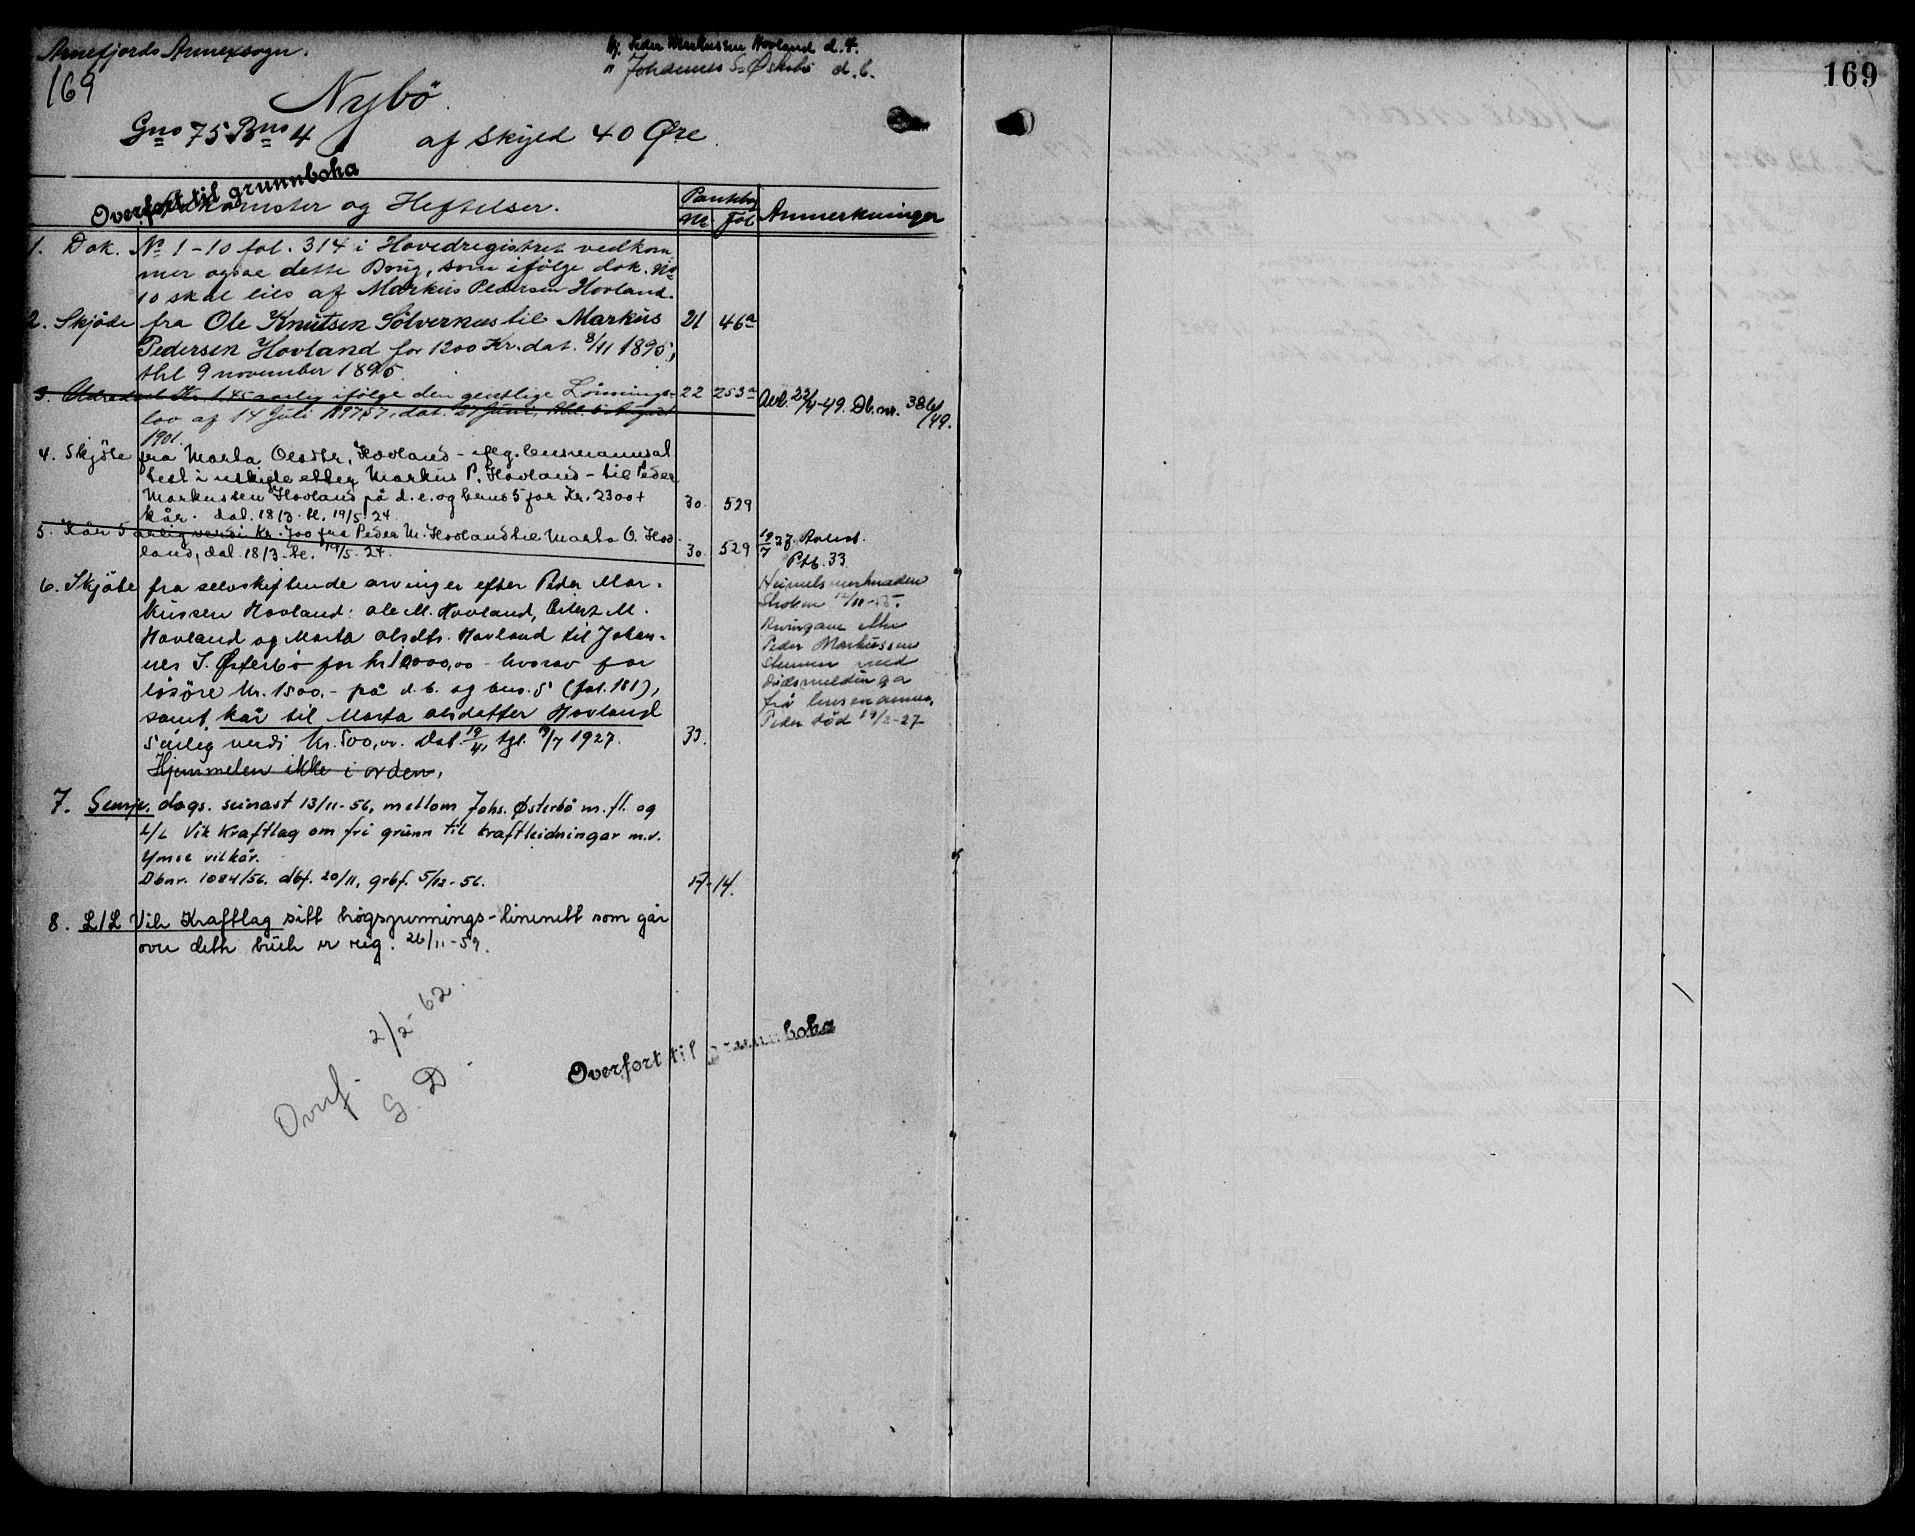 Arnefjords Annexsogn.
Hj. Peder Markussen Hovland d. 4.
" Johannes S. Østerbø d. 6.
169
169
Nybö.
Gno 75 Bno 4 af Skyld 40 Øre.
Overført til grunnboka
Adkomster og Heftelser.
Pantebog
Nr. Fol.
Anmerkninger
1. Dok. No 1-10 fol. 314 i Hovedregistret vedkom
mer ogsaa dette Brug, som ifölge dok. No
10 skal eies af Markus Pedersen Hovland.
2. Skjöde fra Ole Knutsen Sölvernes til Markus 21 46a
Pedersen Hovland for 1200 Kr. dat. 8/11 1895,
thl 9 november 1895.
3. Kr. 1,45 aarlig ifölge den gjeldige Lönnings- 22 253a
lov af 14 Juli 1897 § 7, dat. 27 Juni, thl. 5 August
1901.
Avl. 22/4-49. Db.nr. 386/49.
4. Skjöte fra Marta Olsdtr. Hovland - iflg. lensmannsat
test i uskifte etter Markus P. Hovland - til Peder
Markussen Hovland på d. e. og bnus 5 for Kr. 2300 +
kår. dat. 18/3 - tl. 19/5 24. 30. 529
5. Kår 5 årlig verdi Kr. 700 fra Peder M. Hovland til Marta O. Hov
land, dat. 18/3 - tl. 19/5-24. 30. 529
19/7 27. Avlest.
Ptb. 33
6. Skjöte fra selvskiftende arvinger efter Peder Mar-
kussen Hovland: Ole M. Hovland, M.
Hovland og Marta Olsdtr. Hovland til Johan-
nes S. Østerbö for kr 10000,00 - hvorav for
lösöre kr. 1500,- på d. b. og bno. 5 (fol. 181),
samt kår til Marta Olsdatter Hovland
5 årlig verdi kr. 500,00. Dat. 19/4, tgl. 19/7 1927. 33.
Hjemmelen ikke i orden.
Heimelsmerknaden
stroken 12/11-55.
Arvingane etter
Peder Markussen
stemmer med
dødsmeldinga
frå lensmannen.
Peder död 19/2-27
7. Semje. dags. seinast 13/11-56, mellom Johs. Østerbö m. fl. og
L/L Vik Kraftlag om fri grunn til kraftleidningar m.v.
Ymse vilkår.
Dbnr. 1084/56. dbf. 20/11, grbf. 5/12-56. 17-14.
8. L/L Vik Kraftlag sitt högspennings-linenett som går
over dette bruk er reg. 26/11-59.
Overf. 2/2-62.
G. D.
Overført til grunnboka